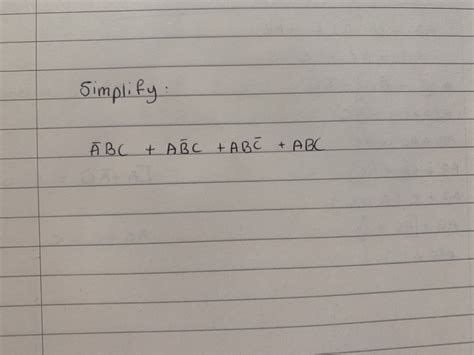 Simplify:
A̅BC + AB̅C + ABC̅ + ABC